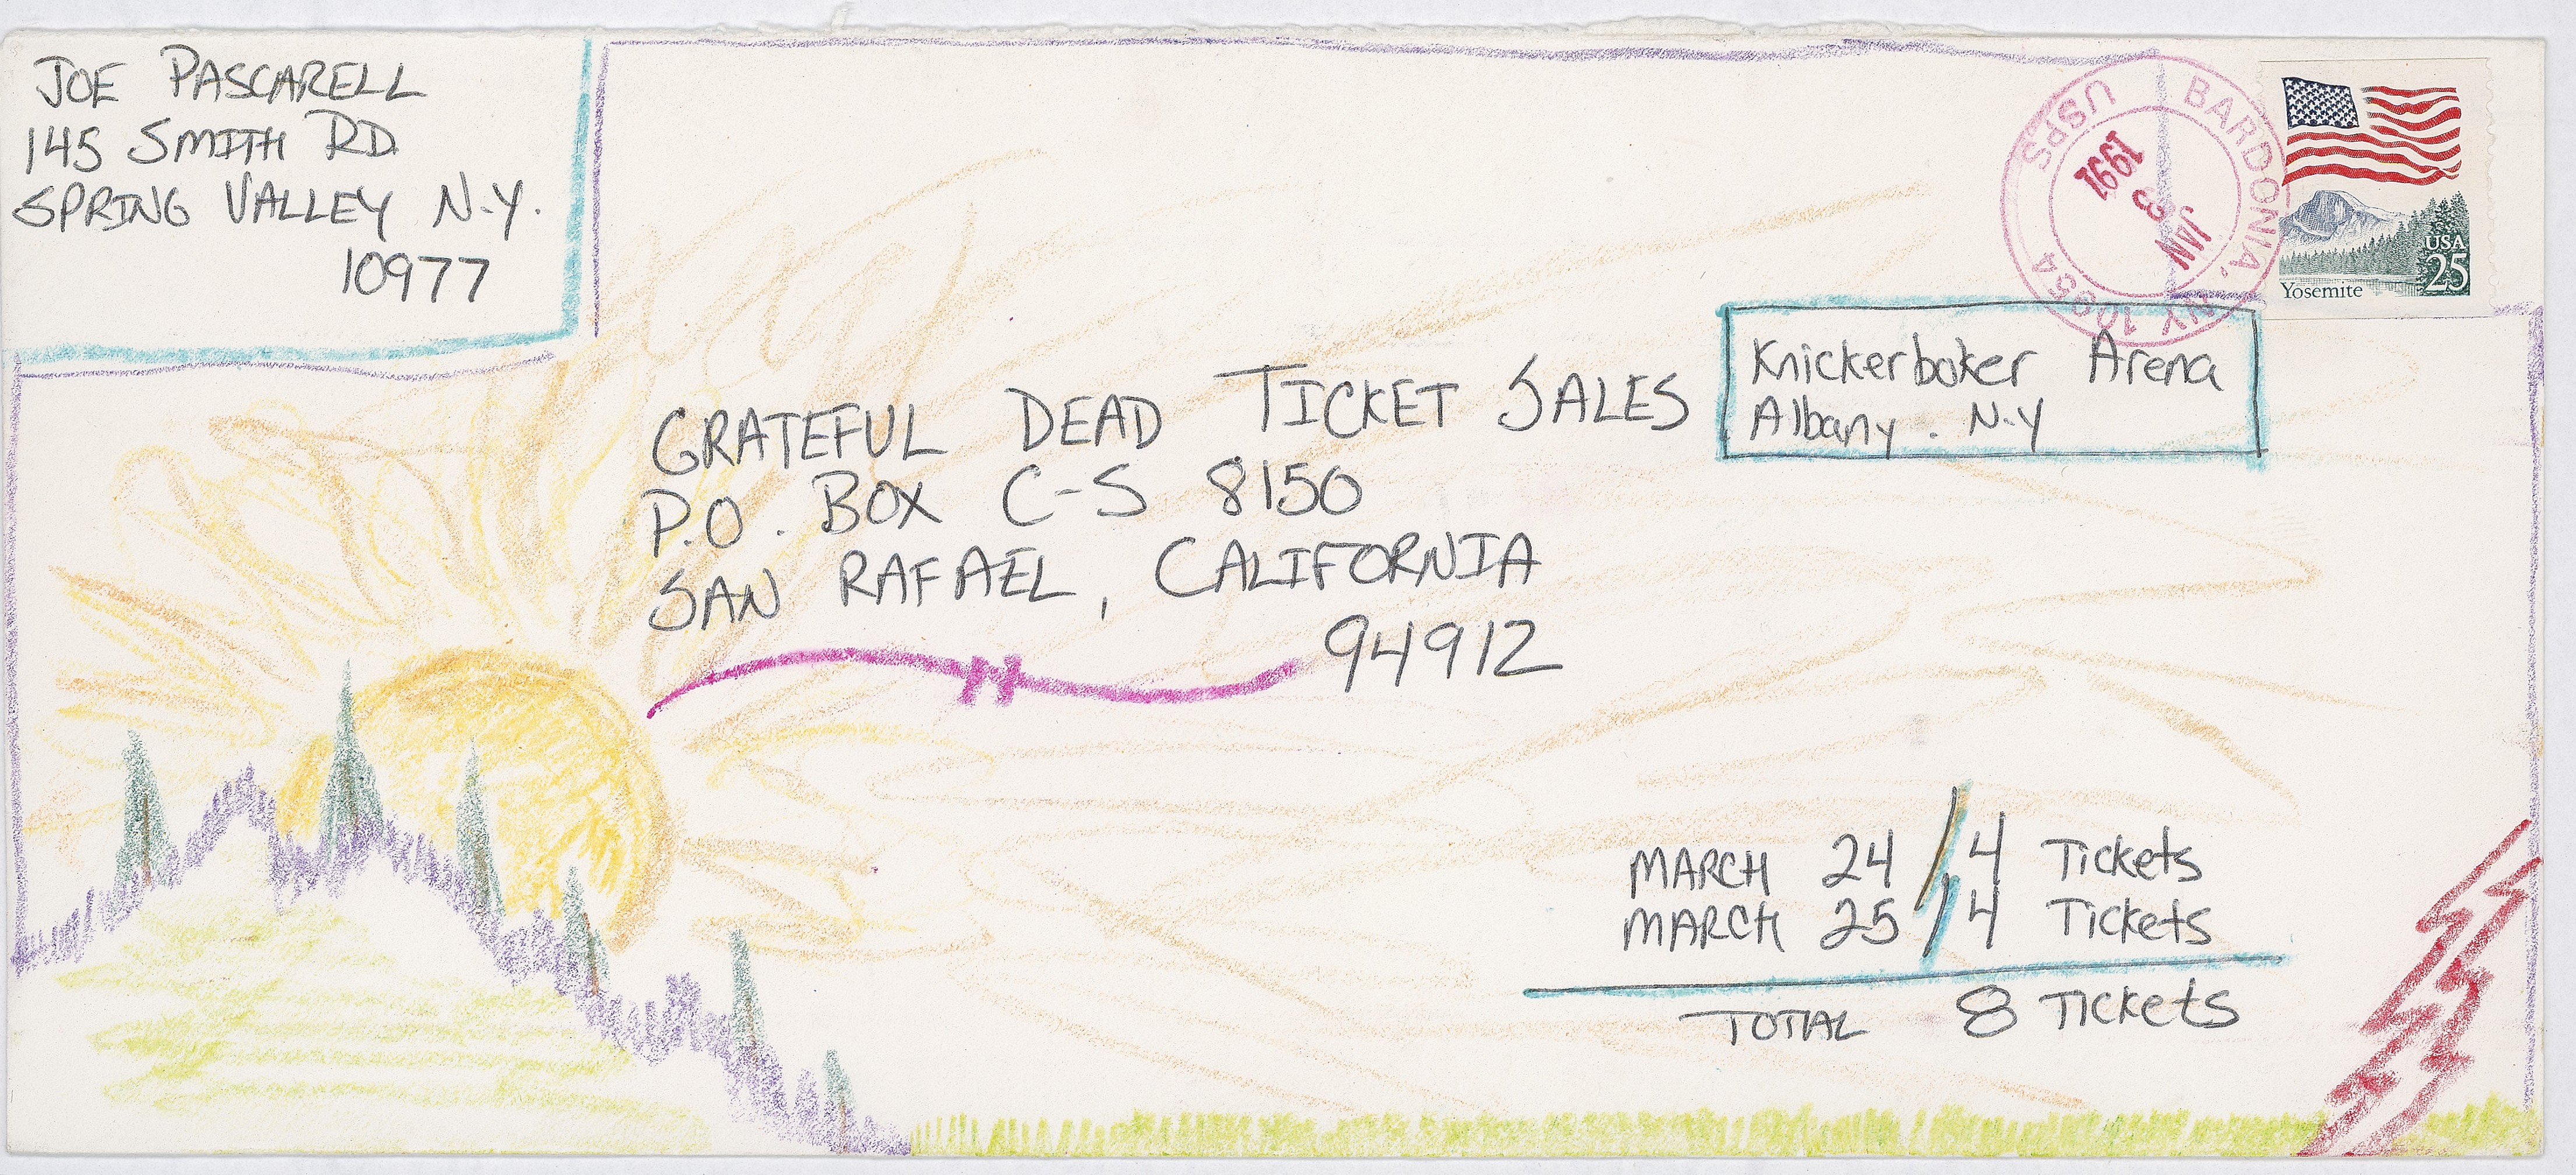 JOE PASCARELL
145 SMITH RD
SPRING VALLEY N.Y.
10977
USPS
BARDONIA, NY 10954
JAN 23 1991
USA
25
Yosemite
Knickerboker Arena
Albany. N.Y
GRATEFUL DEAD TICKET SALES
P.O. BOX C-S 8150
SAN RAFAEL, CALIFORNIA
94912
MARCH 24 / 4 Tickets
MARCH 25 / 4 Tickets
TOTAL 8 Tickets